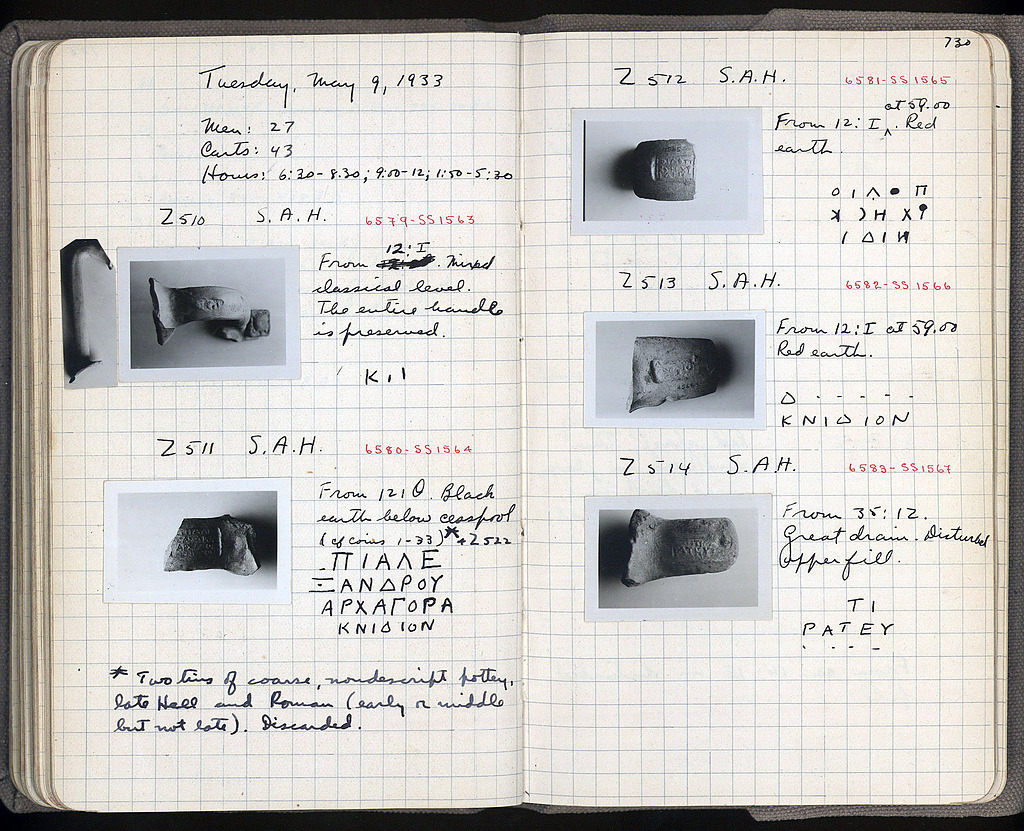 Tuesday, May 9, 1933
Men: 27
Carts: 43
Hours: 6:30-8.30; 9:00-12; 1:50-5:30
Z 510 S.A.H. 6579-SS1563
12:I
From . Mixed
classical level.
The entire handle
is preserved.
Κ . Ι
Z 511 S.A.H. 6580-SS1564
From 12:Θ. Black
earth below cesspool
(cf coins 1-33)* + Z 522
.ΠΙΑΛΕ
ΞΑΝΔΡΟΥ
ΑΡΧΑΓΟΡΑ
ΚΝΙΔΙΟΝ
* Two tins of coarse, nondescript pottery,
late Hell and Roman (early or middle
but not late). Discarded.
730
Z 512 S.A.H. 6581-SS1565
at 59.00
From 12:I ^. Red
earth.
Ο Ι Λ ● Π
Ι Δ Ι Η
Z 513 S.A.H. 6582-SS1566
From 12:I at 59.00
Red earth.
Δ . . . . .
ΚΝΙΔΙΟΝ
Z 514 S.A.H. 6583-SS1567
From 35:12.
Great drain. Disturbed
upper fill.
ΤΙ
ΡΑΤΕΥ
. . . .